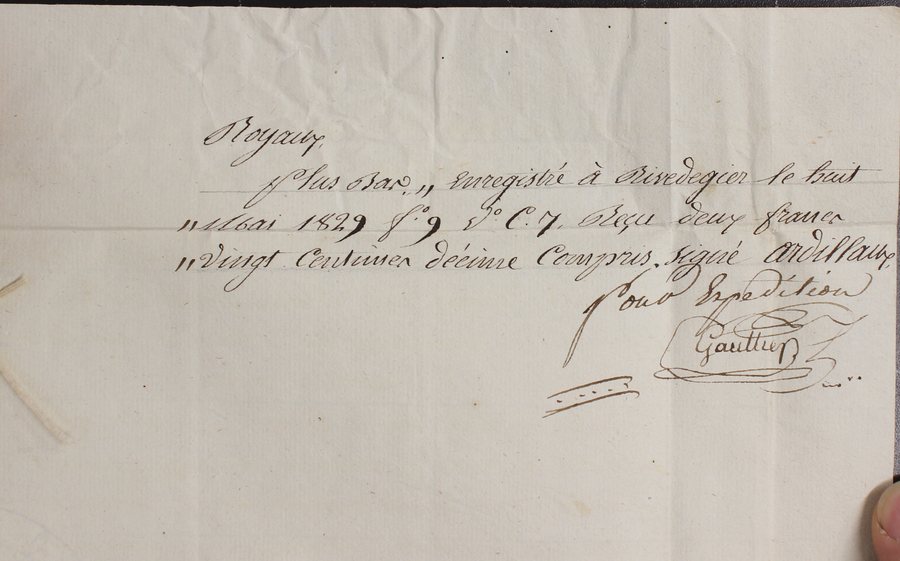 Royaux,
Plus Bas,, Enregistré à Rivedegier le huit
,, Mai 1829 f.° 9 V° C. 7. Reçu deux francs
,, Vingt Centimes décime Compris. signé Ardillaux
Pour Expedition
Gauttier